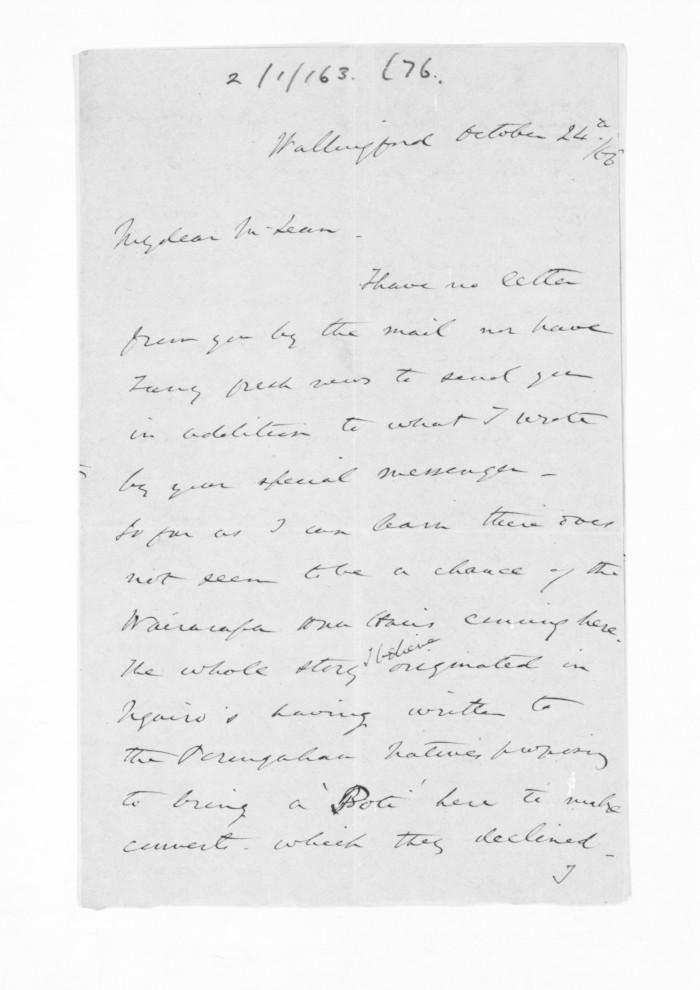 2/1/163. (76.
Wallingford October 24th
/66
My dear McLean.
I have no letter
from you by the mail nor have
I any fresh news to send you
in addition to what I wrote
by your special messenger -
So far as I can learn there does
not seem to be a chance of the
Wairarapa Hau Haus coming here.
The whole story I believe originated in
Ngairo's having written to
the Porangahau Natives proposing
to bring a 'Poti' here to make
converts. which they declined -
I